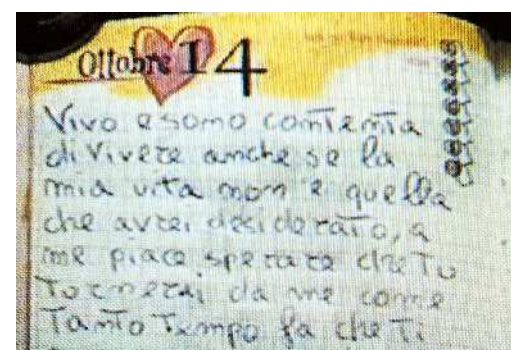 Ottobre 14
Vivo e sono contenta
di vivere anche se la
mia vita non è quella
che avrei desiderato, a
me piace sperare che tu
tornerai da me come
tanto tempo fa che ti